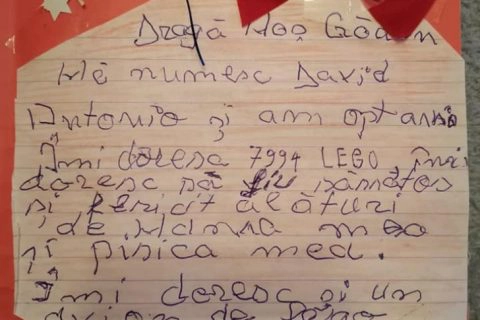 Dragă Moș Crăciun
Mă numesc David
Antonio și am opt anii
Îmi doresc 7994 LEGO, îmi
doresc să fiu sănătos
și fericit alături
de Mama mea
și pisica mea.
Îmi doresc și un
avion de